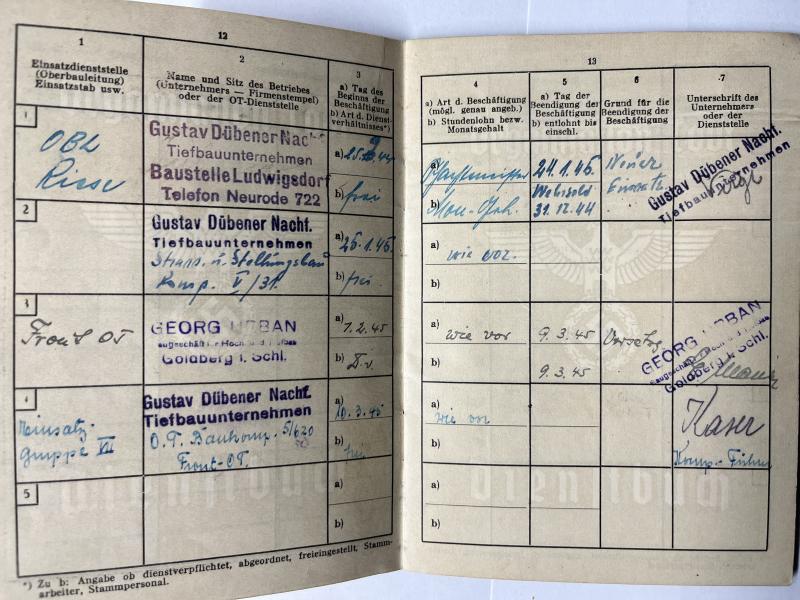 12
1
2
3
Einsatzdienststelle
(Oberbauleitung)
Einsatzstab usw.
Name und Sitz des Betriebes
(Unternehmers — Firmenstempel)
oder der OT-Dienststelle
a) Tag des
Beginns der
Beschäftigung
b) Art d. Dienst-
verhältnisses*)
1
OBL
Riese
Gustav Dübener Nachf.
Tiefbauunternehmen
Baustelle Ludwigsdorf
Telefon Neurode 722
a) 25. 44
b) frei
2
Gustav Dübener Nachf.
Tiefbauunternehmen
Strass. u. Stellungsbau
Komp. V/31.
a) 25.1.45.
b) frei
3
Front OT
GEORG URBAN
Baugeschäft für Hoch und Tiefbau
Goldberg i. Schl.
a) 1.2.45
b) D.v.
4
Einsatz-
gruppe VII
Gustav Dübener Nachf.
Tiefbauunternehmen
O.T. Baukomp. 5/620
Front-OT.
a) 10.3.45
b) frei
5
a)
b)
*) Zu b: Angabe ob dienstverpflichtet, abgeordnet, freieingestellt, Stamm-
arbeiter, Stammpersonal.
Dienstbuch
13
4
5
6
7
a) Art d. Beschäftigung
(mögl. genau angeb.)
b) Stundenlohn bezw.
Monatsgehalt
a) Tag der
Beendigung der
Beschäftigung
b) entlohnt bis
einschl.
Grund für die
Beendigung der
Beschäftigung
Unterschrift des
Unternehmers
oder der
Dienststelle
a) Schachtmeister
b) Mon.-Geh.
24.1.45.
Wehrsold
31.12.44
Neuer
Einsatz.
Gustav Dübener Nachf.
Tiefbauunternehmen
a) wie vor.
b)
a) wie vor
b)
9.3.45
9.3.45
Versetzg
GEORG URBAN
Baugeschäft für Hoch und Tiefbau
Goldberg i. Schl.
a) wie vor
b)
Kaser
Komp.-Führer
a)
b)
Dienstbuch